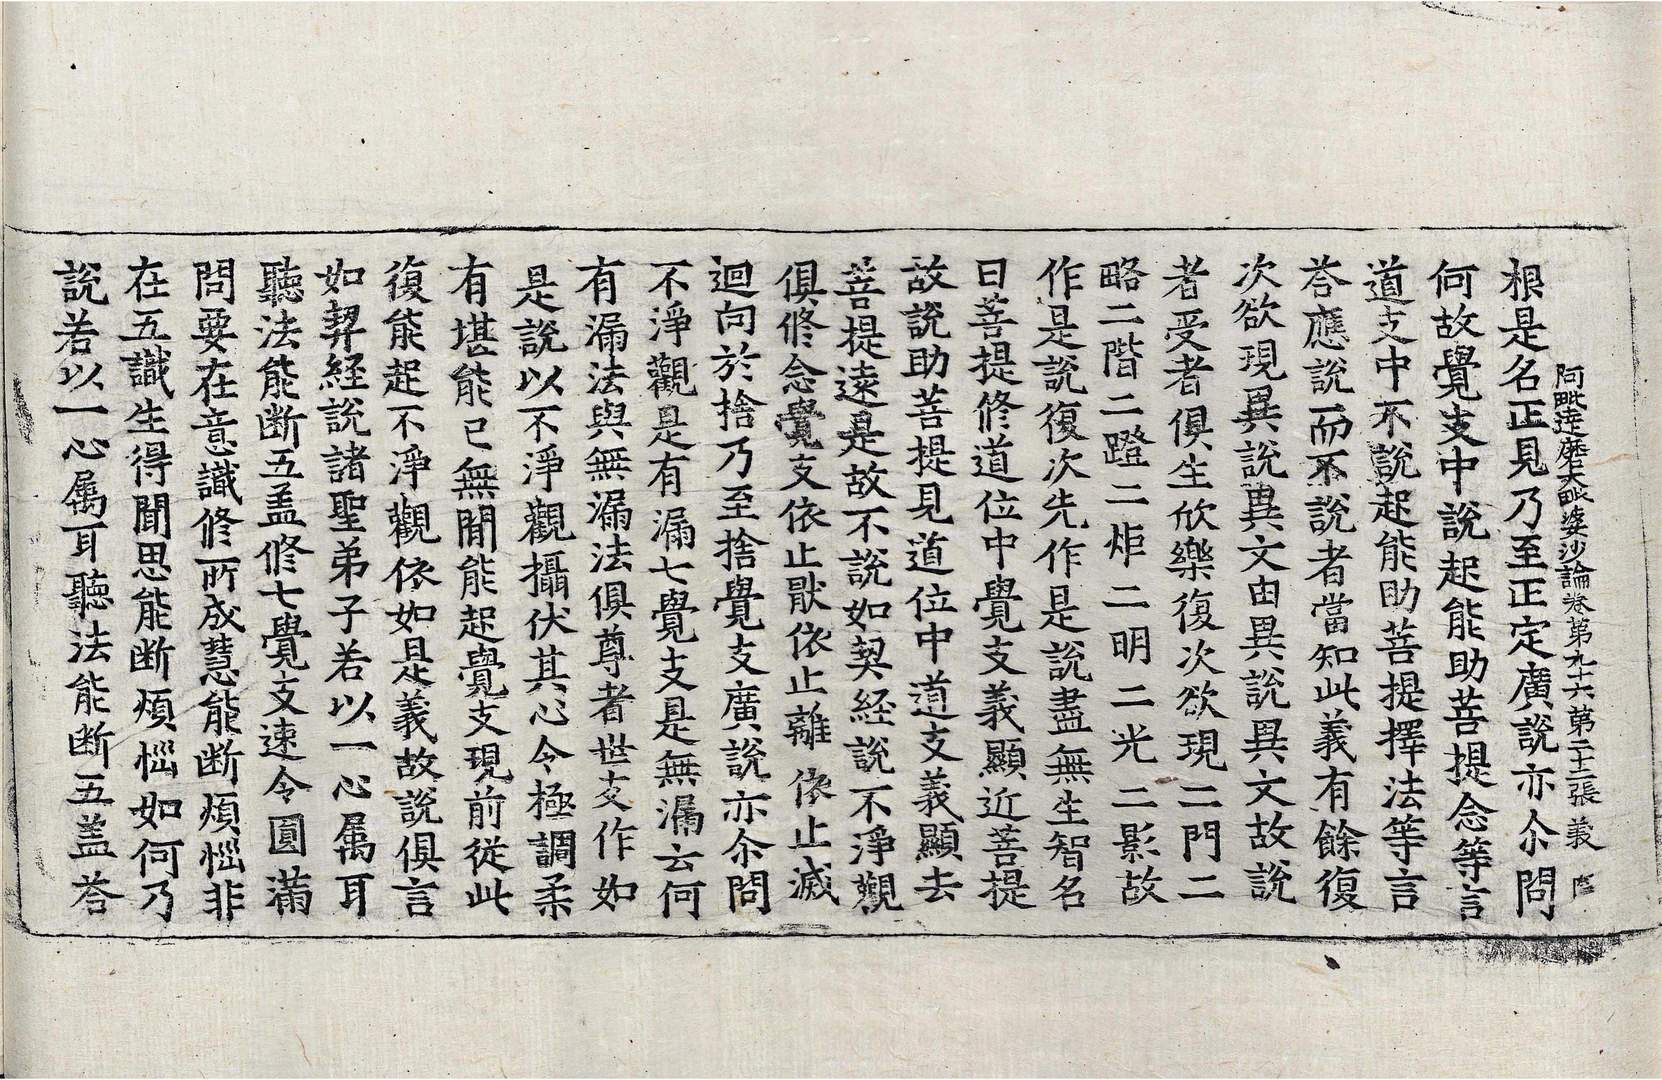 阿毗達磨大毗婆沙論卷第九十六第二十二張 義
根是名正見乃至正定廣說亦尒問
何故覺支中說起能助菩提念等言
道支中不說起能助菩提擇法等言
荅應說而不說者當知此義有餘復
次欲現異說異文由異說異文故說
者受者俱生欣樂復次欲現二門二
略二階二蹬二炬二明二光二影故
作是說復次先作是說盡無生智名
曰菩提修道位中覺支義顯近菩提
故說助菩提見道位中道支義顯去
菩提遠是故不說如契經說不淨觀
俱修念覺支依止猒依止離依止滅
迴向於捨乃至捨覺支廣說亦尒問
不淨觀是有漏七覺支是無漏云何
有漏法與無漏法俱尊者世友作如
是說以不淨觀攝伏其心令極調柔
有堪能已無間能起覺支現前從此
復能起不淨觀依如是義故說俱言
如契經說諸聖弟子若以一心属耳
聽法能断五盖修七覺支速令圓滿
問要在意識修所成慧能断煩惱非
在五識生得聞思能断煩惱如何乃
說若以一心属耳聽法能断五盖荅